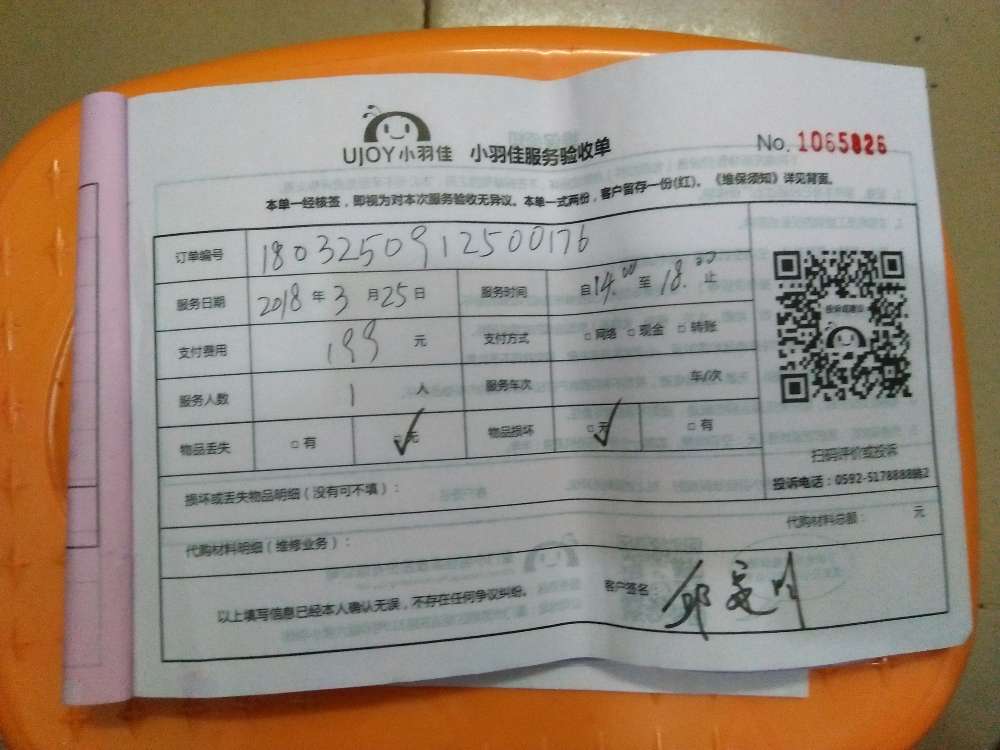 UJOY小羽佳 小羽佳服务验收单 No. 1065826
本单一经核签，即视为对本次服务验收无异议。本单一式两份，客户留存一份(红)。《维保须知》详见背面。
订单编号 1803250912500176
服务日期 2018 年 3 月 25 日 服务时间 自 14:00 至 18:00 止
支付费用 199 元 支付方式 □ 网络 □ 现金 □ 转账
服务人数 1 人 服务车次 车/次
物品丢失 □ 有 □ 无 ✓ 物品损坏 □ 无 ✓ □ 有
扫码评价或投诉
投诉电话：0592-5178888转2
损坏或丢失物品明细（没有可不填）：
代购材料明细（维修业务）： 代购材料总额： 元
以上填写信息已经本人确认无误，不存在任何争议纠纷。 客户签名：